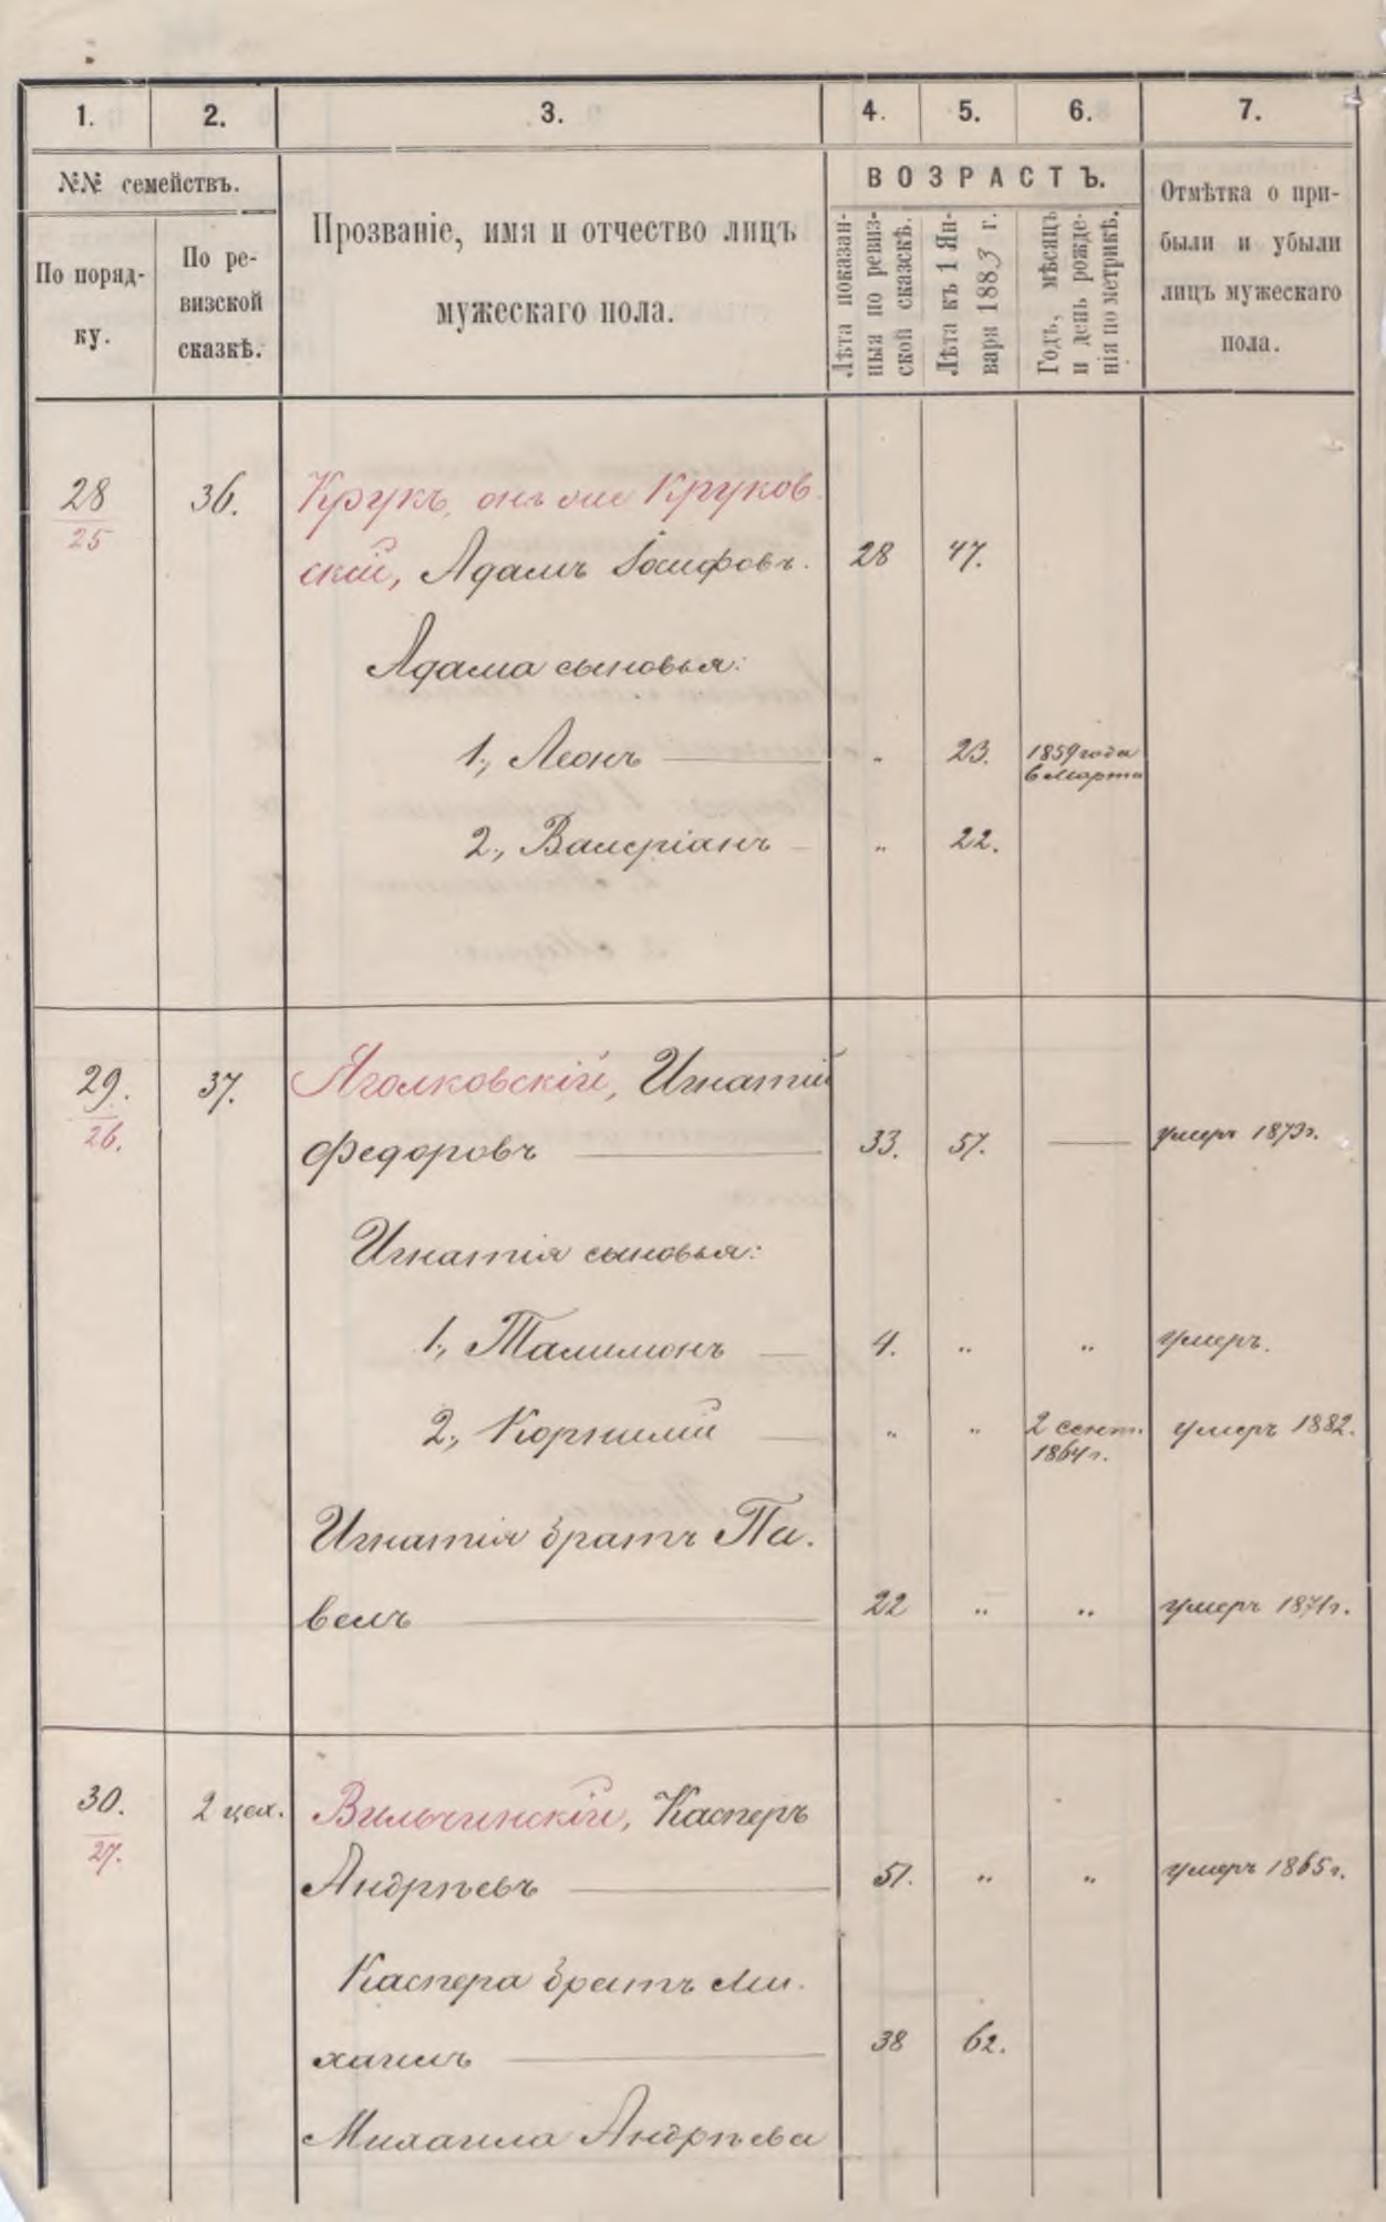 1. 2. 3. 4. 5. 6. 7.
№№ семействъ.
По поряд-
ку.
По ре-
визской
сказкѣ.
Прозваніе, имя и отчество лицъ
мужескаго пола.
ВОЗРАСТЪ.
Лѣта показан-
ныя по ревиз-
ской сказскѣ.
Лѣта къ 1 Ян-
варя 1883 г.
Годъ, мѣсяцъ
и день рожде-
нія по метрикѣ.
Отмѣтка о при-
были и убыли
лицъ мужескаго
пола.
28 36. Крукъ, онъ же Круков
25
скій, Адамъ Іосифовъ. 28 47.
Адама сыновья:
1., Леонъ „ 23. 1859 года
6 Марта
2., Валеріанъ „ 22.
29. 37. Яголковскій, Игнатій
26.
Федоровъ 33. 57. умеръ 1873г.
Игнатія сыновья:
1., Талимонъ 4. „ „ умеръ.
2., Корнилій „ „ 2 сент. умеръ 1882.
1864г.
Игнатія братъ Па.
велъ 22 „ „ умеръ 1871г.
30. 2 цех. Вильчинскій, Касперъ
27.
Андрѣевъ 51. „ „ умеръ 1865г.
Каспера братъ Ми.
хаилъ 38 62.
Михаила Андрѣева